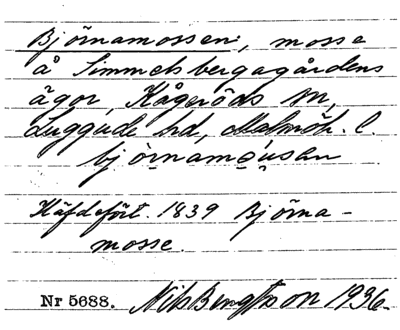 Björnamossen, mosse
å Simmelsbergagårdens
ägor, Kågeröds sn,
Luggude hd, Malmöh. l.
björnamousan
Häfdefört. 1839 Björna-
mosse.
Nr 5688. Nils Bengtsson 1936.